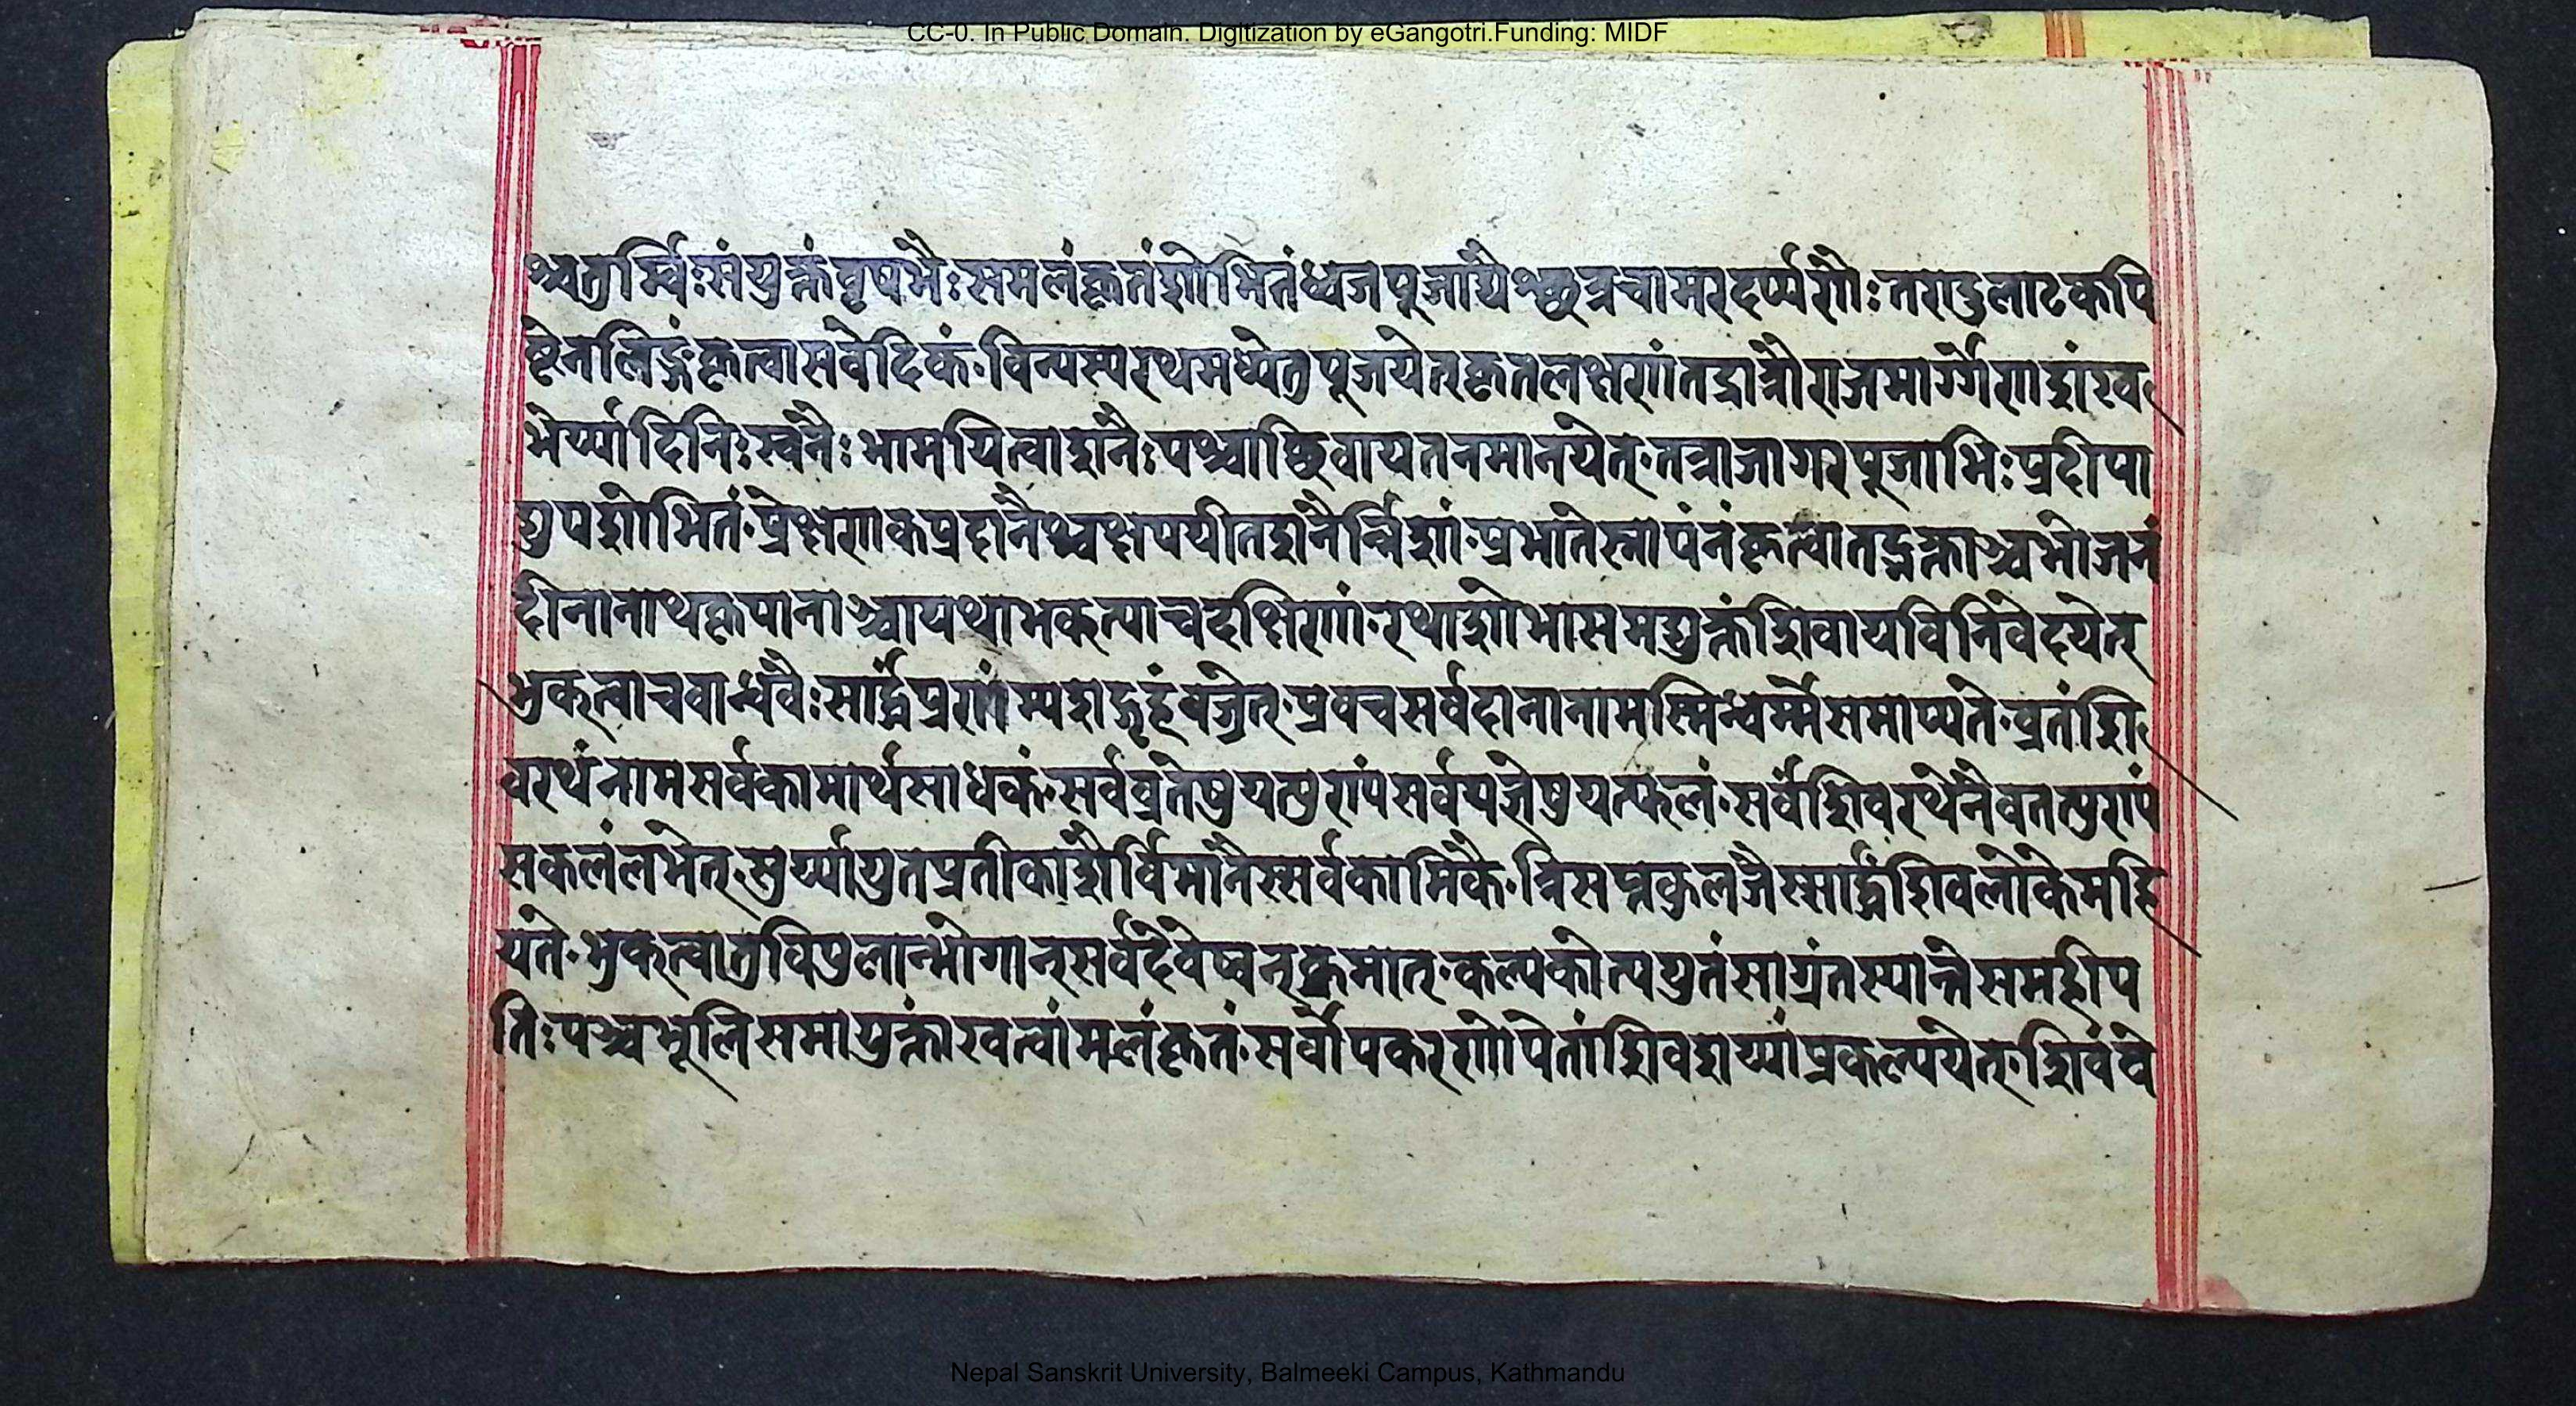 CC-0. In Public Domain. Digitization by eGangotri.Funding: MIDF
श्चतुर्भिःसंयुक्तंवृषभैःसमलंकृतंशोभितंध्वजपूजाद्यैश्छत्रचामरदर्प्पणैः तण्डुलाढकपि
ष्टेनलिङ्गंकृत्वासवेदिकं विन्यस्यरथमध्येतुपूजयेत्कृतलक्षणंतद्रात्रौराजमार्ग्गेणशंख
भेर्य्यादिनिःस्वनैःभ्रामयित्वाशनैःपश्चाच्छिवायतनमानयेत् तत्राजागरपूजाभिःप्रदीपा
द्युपशोभितं प्रेक्षणकप्रदानैश्चक्षपयीतशनैर्न्निशां प्रभातेस्नापनंकृत्वातद्भक्ताञ्चभोजनं
दीनानाथकृपानाञ्चायथाभक्त्याचदक्षिणां रथाशोभासमद्युक्तंशिवायविनिवेदयेत्
भुक्त्वाचवान्धवैःसार्द्धंप्रणम्यशद्गृहंव्रजेत् प्रवचसर्वदानानामस्मिन्धर्म्मेसमाप्यते व्रतंशि
वरथंनामसर्वकामार्थसाधकं सर्वव्रतेषुयत्पुण्यंसर्वयज्ञेषुयत्फलं सर्वंशिवरथेनैवतत्पुण्यं
सकलंलभेत् सुर्य्यायुतप्रतीकाशैर्विमानैस्सर्वकामिकै त्रिसप्तकुलजैस्सार्द्धंशिवलोकेमहि
यते भुक्त्वातुविपुलान्भोगान्सर्वदेवेष्वनुक्रमात् कल्पकोत्ययुतंसाग्रंतस्यान्तेसमहीप
तिः पञ्चभूलिसमायुक्तांरवत्वांमलंकृतं सर्वोपकरणोपेतांशिवशय्यांप्रकल्पयेत् शिवंवे
Nepal Sanskrit University, Balmeeki Campus, Kathmandu